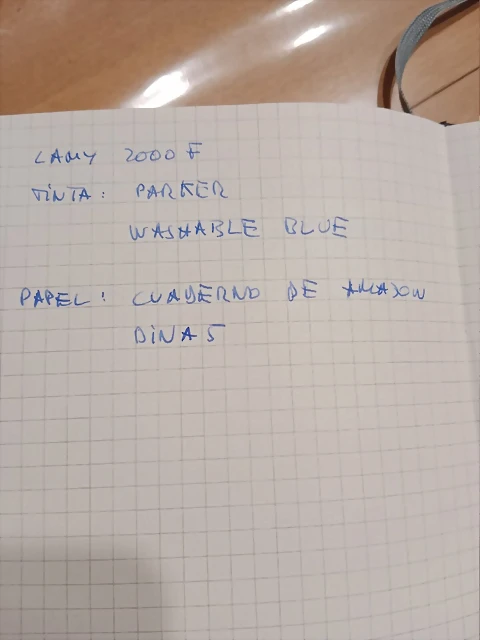 LAMY 2000 F
TINTA: PARKER
WASHABLE BLUE
PAPEL: CUADERNO DE AMAZON
DINA5